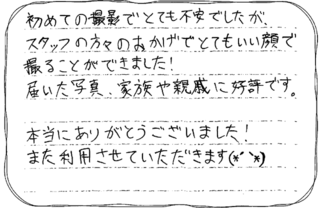 初めての撮影でとても不安でしたが、
スタッフの方々のおかげでとてもいい顔で
撮ることができました!
届いた写真、家族や親戚に好評です。
本当にありがとうございました!
また利用させていただきます(*´`*)